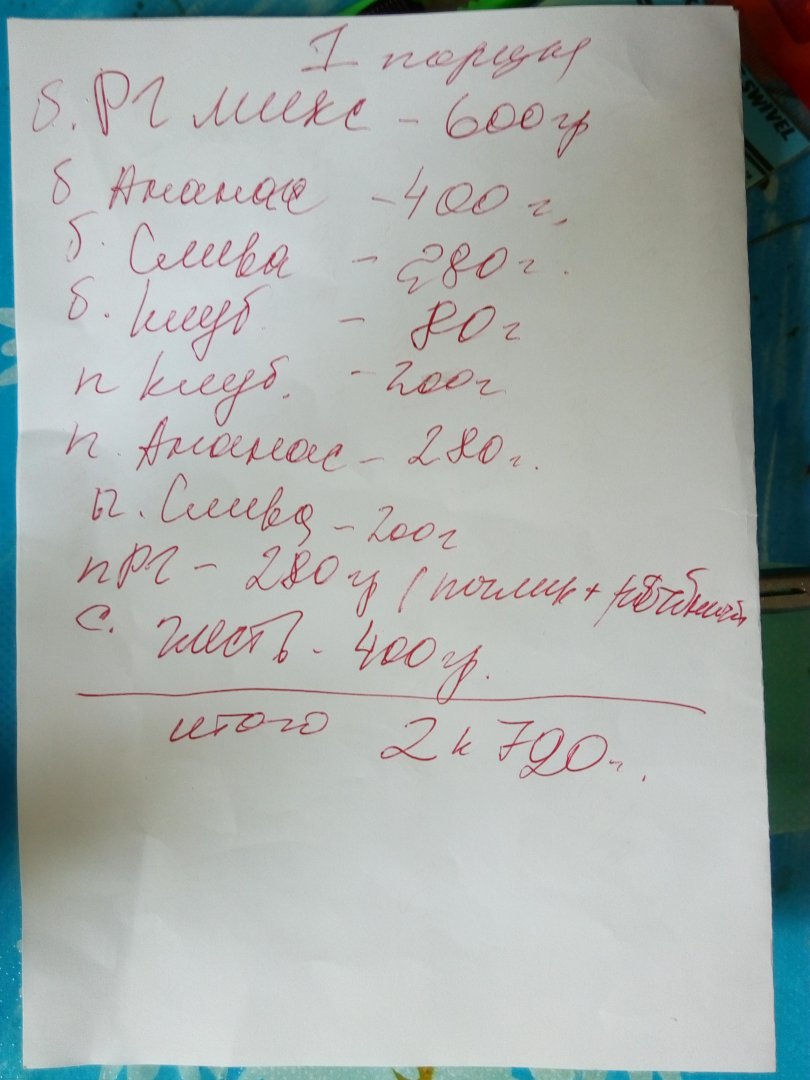 1 порция
б. РГ микс - 600 гр
б Ананас - 400 г.
б. Слива - 280 г.
б. клуб. - 80 г
п клуб. - 200 г
п. Ананас - 280 г.
п. Слива - 200 г
п РГ - 280 гр (
с. жесть - 400 гр.
итого 2 к 720 г.
SWIVEL